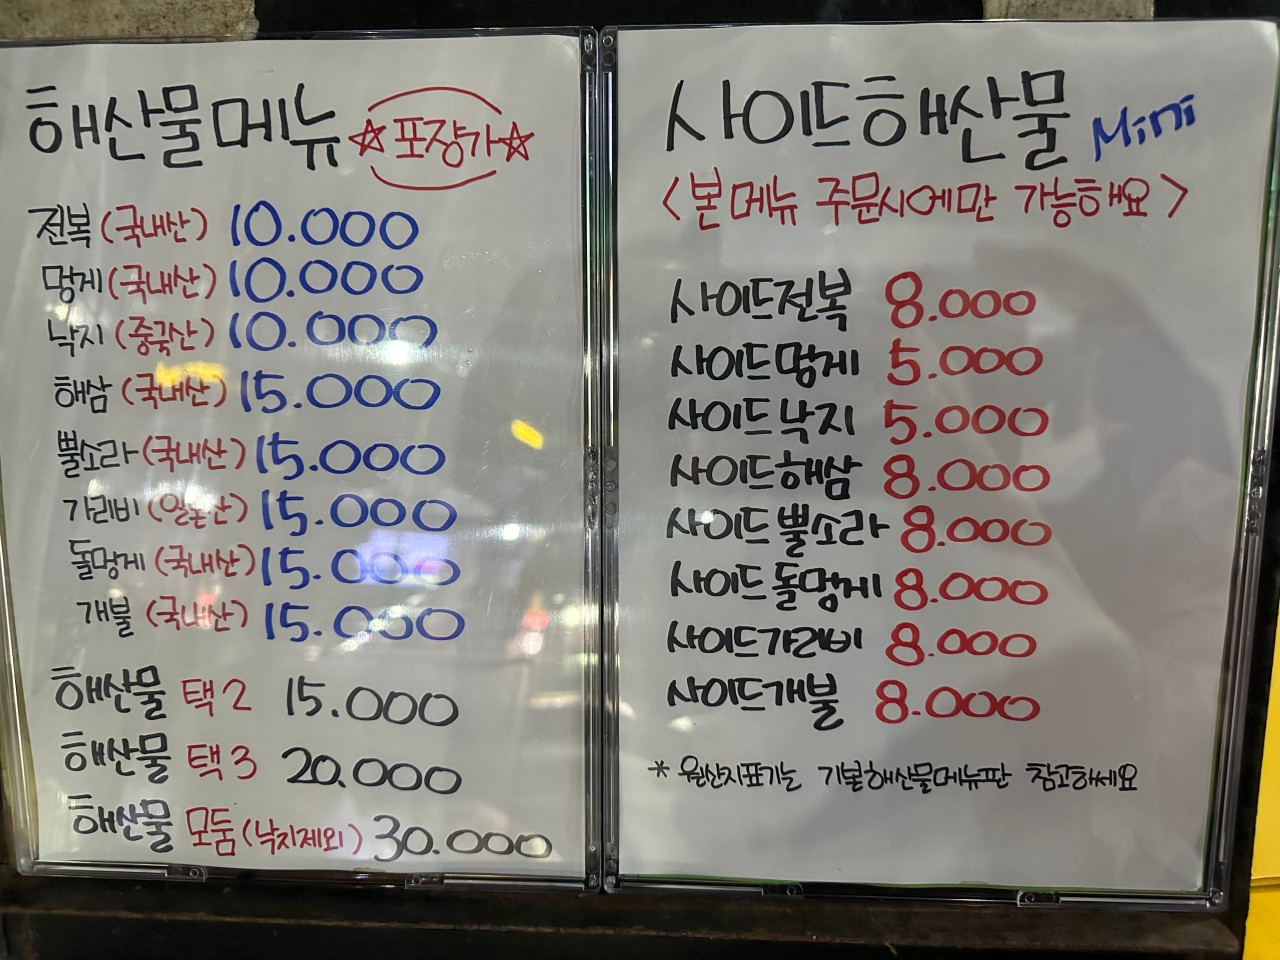 해산물메뉴 ☆포장가☆
전복(국내산) 10.000
멍게(국내산) 10.000
낙지(중국산) 10.000
해삼(국내산) 15.000
뿔소라(국내산) 15.000
가리비(일본산) 15.000
돌멍게(국내산) 15.000
개불(국내산) 15.000
해산물 택2 15.000
해산물 택3 20.000
해산물 모둠(낙지제외) 30.000
사이드해산물 Mini
<본메뉴 주문시에만 가능해요>
사이드전복 8.000
사이드멍게 5.000
사이드낙지 5.000
사이드해삼 8.000
사이드뿔소라 8.000
사이드돌멍게 8.000
사이드가리비 8.000
사이드개불 8.000
* 원산지표기는 기본해산물메뉴판 참고하세요